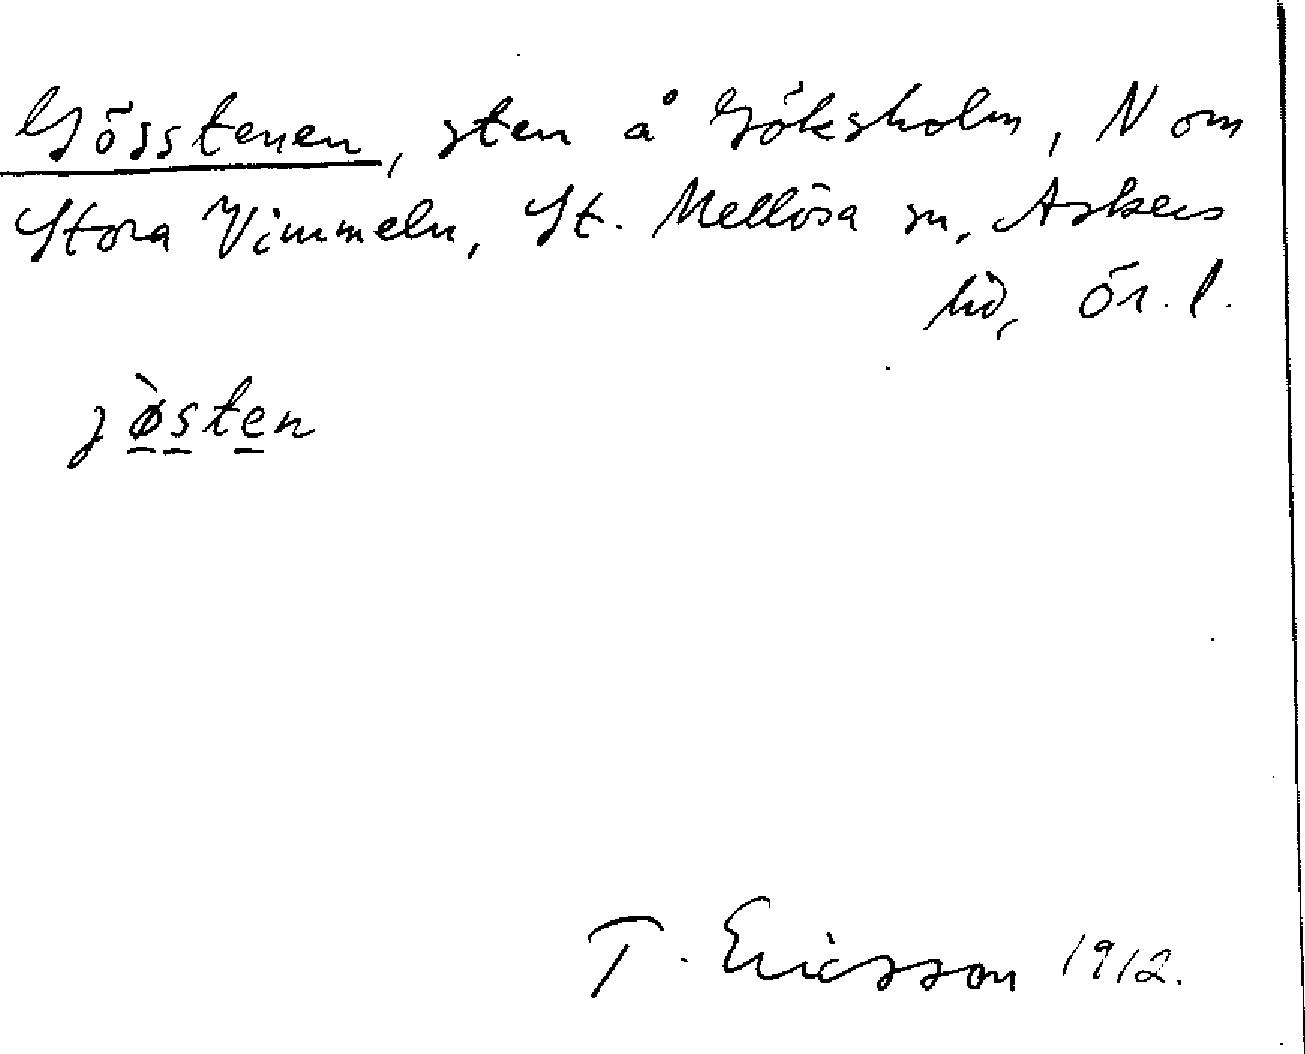 Gösstenen, sten å Göksholm, N om
Stora Vimmeln, St. Mellösa sn, Askers
hd, Ör. l.
jø̀sten
T. Ericsson 1912.